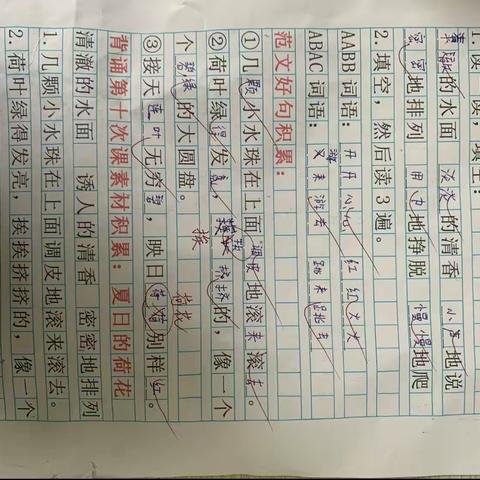 1. 读一读，填空：
清澈的水面 淡淡的清香 小声地说
密密地排列 用力地挣脱 慢慢地爬
2. 填空，然后读3遍。
AABB词语：开开心心 红红火火
ABAC词语：游来游去 跳来跳去
范文好句积累：
①几颗小水珠在上面调皮地滚来滚去。
②荷叶绿得发亮，挨挤的，像一个
挨
个碧绿的大圆盘。
荷花
③接天莲叶无穷碧，映日别样红。
背诵第十次课素材积累：夏日的荷花
清澈的水面 诱人的清香 密密地排列
1. 几颗小水珠在上面调皮地滚来滚去。
2. 荷叶绿得发亮，挨挨挤挤的，像一个